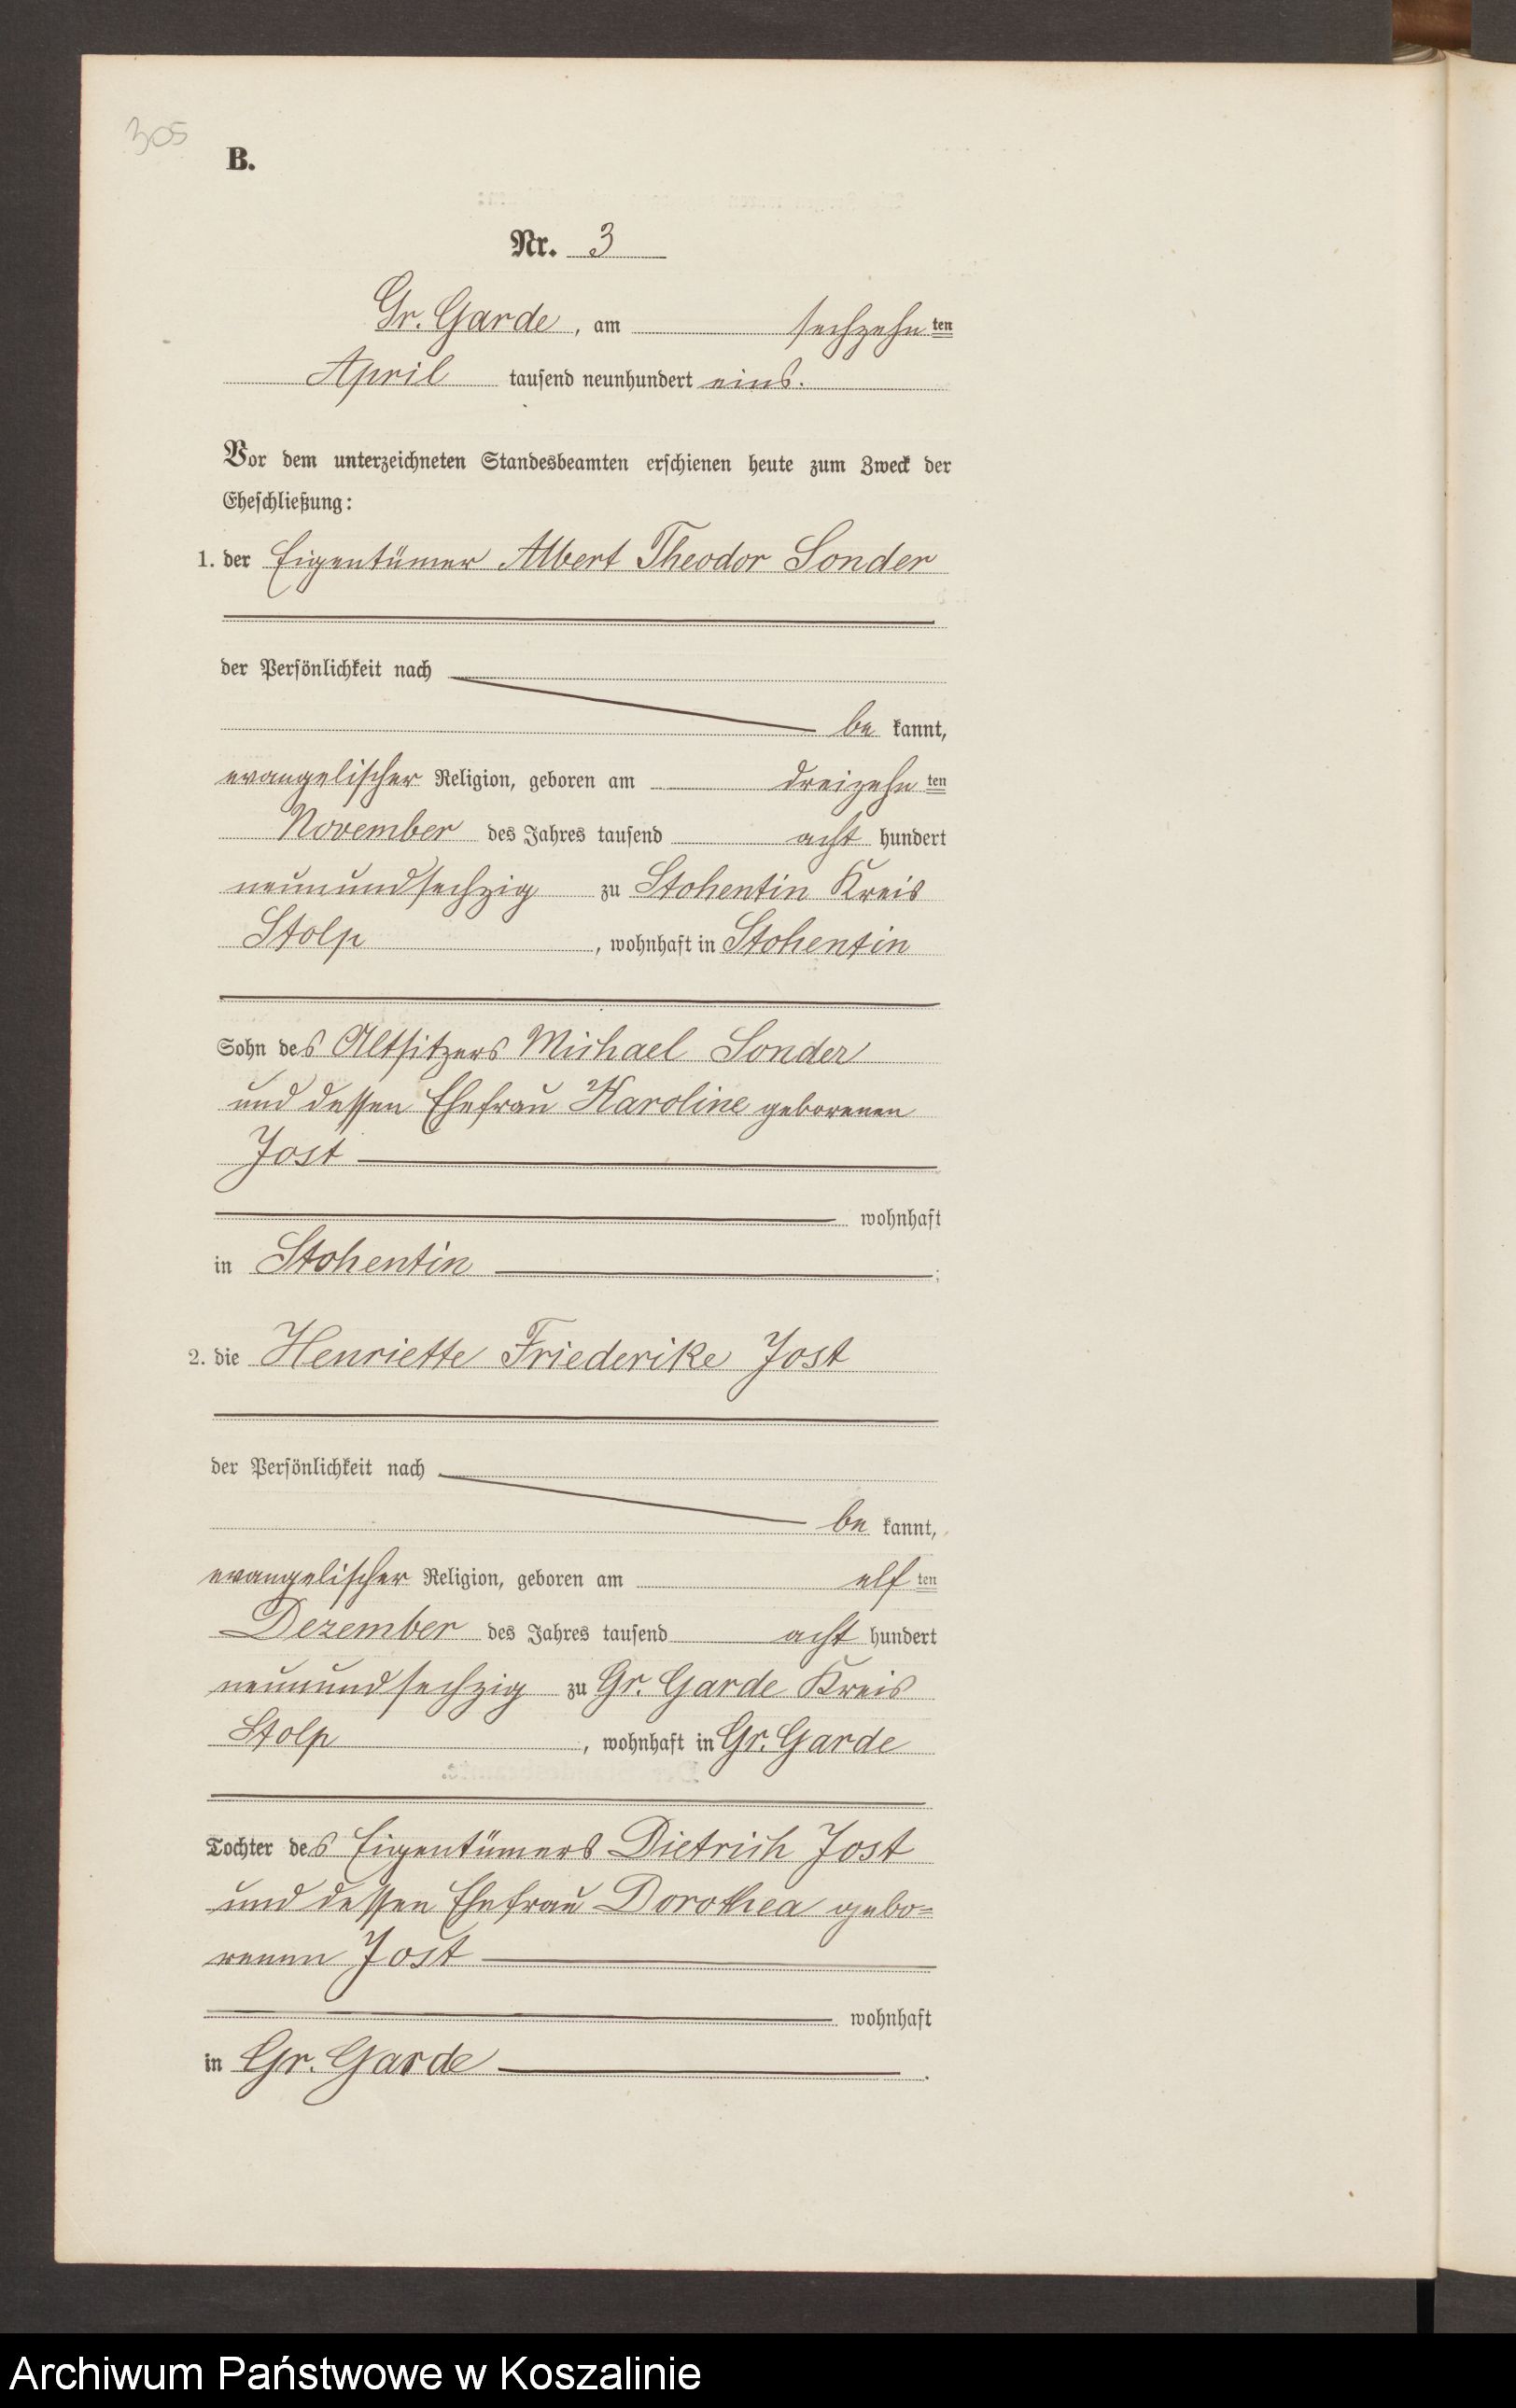 305
B.
Nr. 3
Gr. Garde, am sechzehn ten
April tausend neunhundert eins.
Vor dem unterzeichneten Standesbeamten erschienen heute zum Zweck der
Eheschließung:
1. der Eigentümer Albert Theodor Sonder
der Persönlichkeit nach
be kannt,
evangelischer Religion, geboren am dreizehn ten
November des Jahres tausend acht hundert
neunundsechzig zu Stohentin Kreis
Stolp, wohnhaft in Stohentin
Sohn des Altsitzers Michael Sonder
und dessen Ehefrau Karoline geborenen
Jost
wohnhaft
in Stohentin;
2. die Henriette Friederike Jost
der Persönlichkeit nach
be kannt,
evangelischer Religion, geboren am elf ten
Dezember des Jahres tausend acht hundert
neunundsechzig zu Gr. Garde Kreis
Stolp, wohnhaft in Gr. Garde
Tochter des Eigentümers Dietrich Jost
und dessen Ehefrau Dorothea gebo=
renen Jost
wohnhaft
in Gr. Garde.
Archiwum Państwowe w Koszalinie